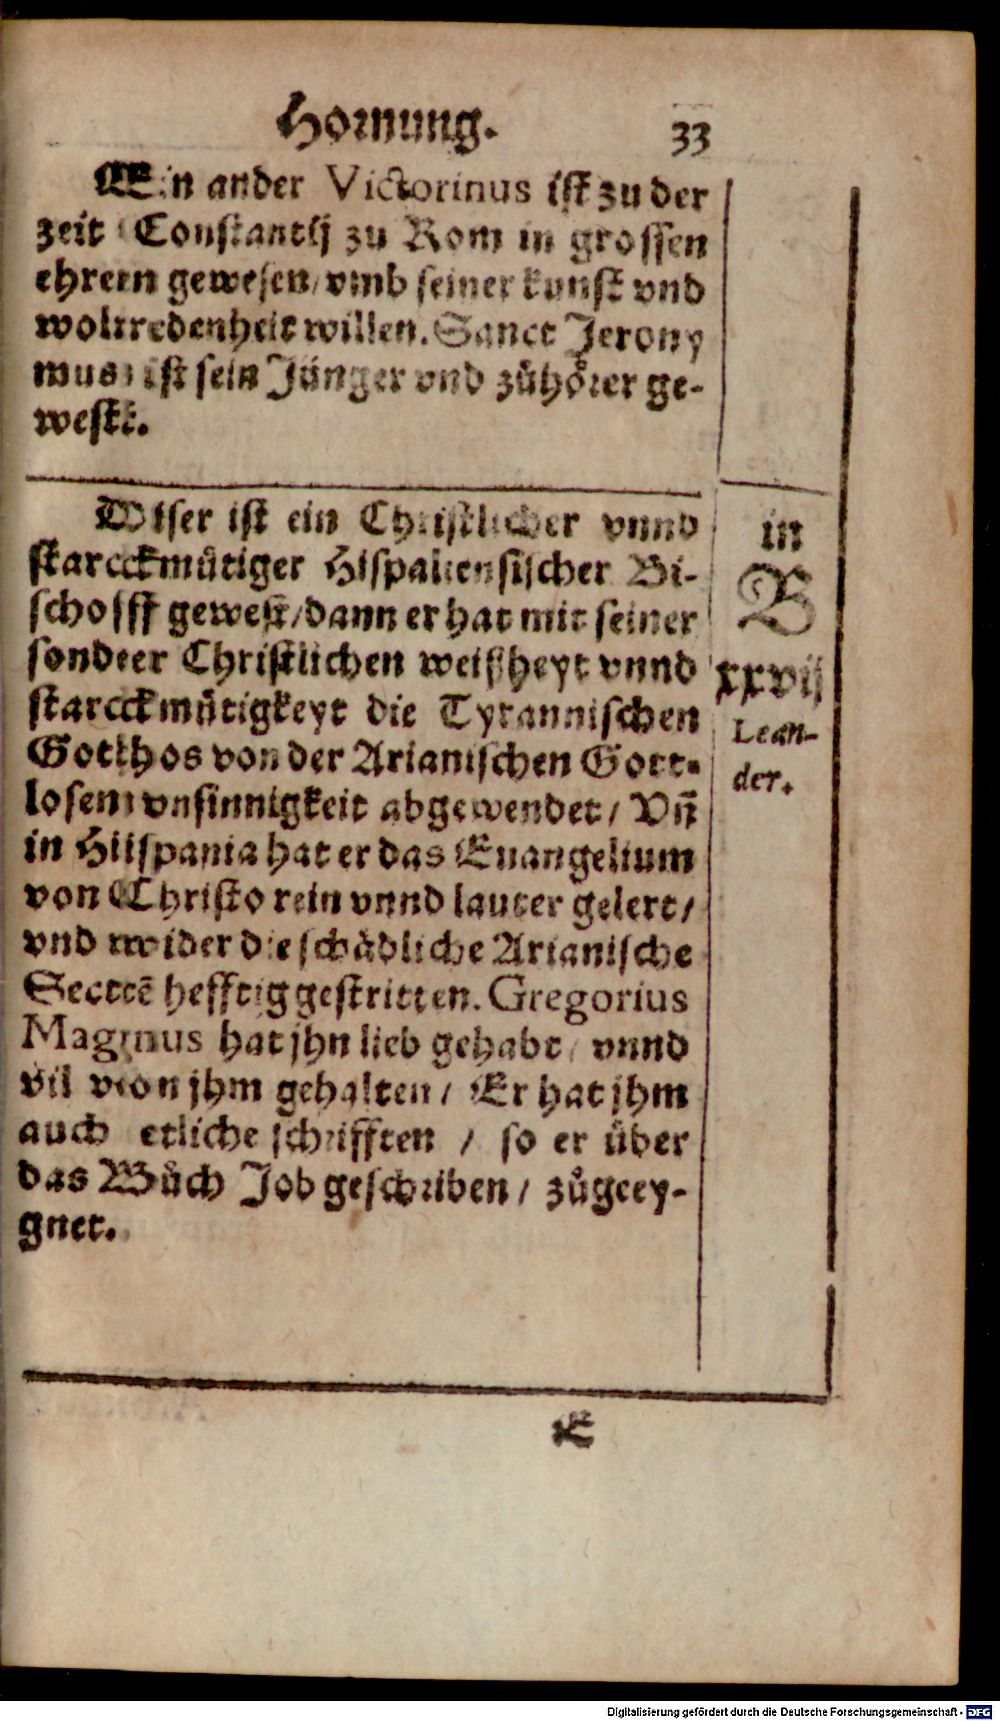 Hornung. 33
Ein ander Victorinus ist zu der
zeit Constantij zu Rom in grossen
ehren gewesen/ vmb seiner kunst vnd
wolredenheit willen. Sanct Jerony
mus ist sein Jünger vnd zůhörer ge-
west.
Diser ist ein Christlicher vnnd
starckmůtiger Hispaliensischer Bi-
schoff gewest/ dann er hat mit seiner
sonder Christlichen weißheyt vnnd
starckmůtigkeyt die Tyrannischen
Gotthos von der Arianischen Gott-
losen vnsinnigkeit abgewendet/ Vñ
in Hispania hat er das Euangelium
von Christo rein vnnd lauter gelert/
vnd wider die schådliche Arianische
Sectē hefftig gestritten. Gregorius
Magnus hat jhn lieb gehabt/ vnnd
vil von jhm gehalten/ Er hat jhm
auch etliche schrifften / so er über
das Bůch Job geschriben/ zůgeey-
gnet.
in
B
xxvij
Lean-
der.
E
Digitalisierung gefördert durch die Deutsche Forschungsgemeinschaft - DFG